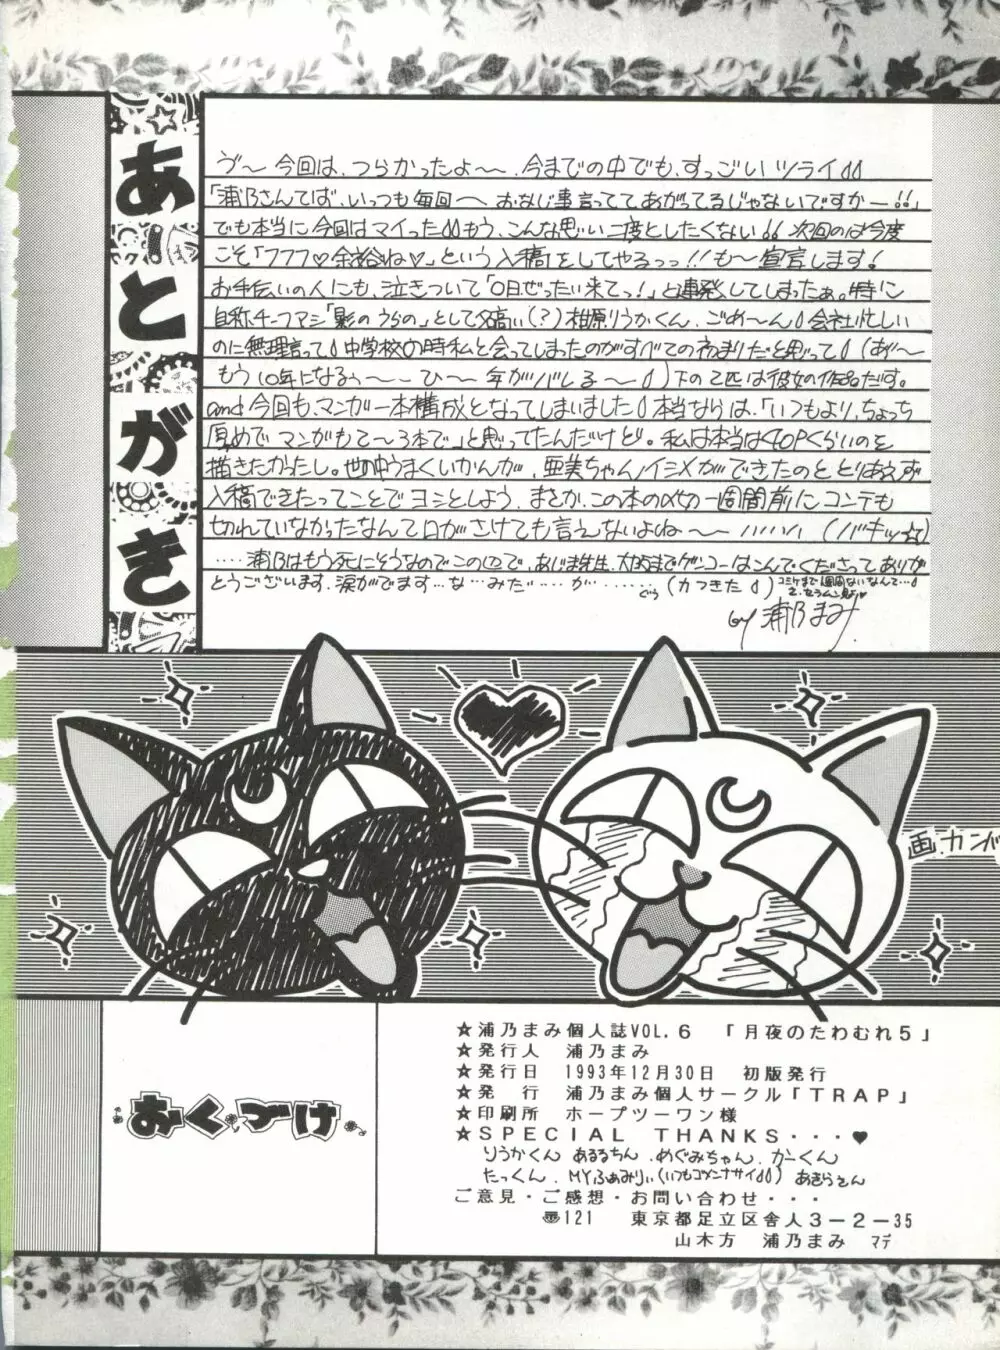 あとがき
ゔ〜今回は、つらかったよ〜、今までの中でも、すっごいツライ
「浦乃さんてば、いつも毎回〜おなじ事言っててあがってるじゃないですかー!!」
でも本当に今回はマイったもう、こんな思い二度としたくない!!次回のは今度
こそ「フフフ♡余裕ね♡」という入稿をしてやるっっ!!も〜宣言します!
お手伝いの人にも、泣きついて「0日ぜったい来てっ!」と連発してしまったぁ。特に
自称チーフアシ「影のうらの」として名高い(?)相原りうかくん、ごめ〜ん会社忙しい
のに無理言って中学校の時私と会ってしまったのがすべての初まりだと思って(あ゙〜
もう10年になるぅ〜〜ひ〜年がバレる〜)下の2匹は彼女の作品だす。
and今回も、マンガ一本構成となってしまいました本当ならは、「いつもより、ちょっち
厚めでマンガもて〜3本で」と思ってたんだけど。私は本当は40Pくらいのを
描きたかったし。世の中うまくいかんが、亜美ちゃんイジメができたのととりあえず
入稿できたってことでヨシとしよう、まさか、この本の〆切一週間前にコンテも
切れていなかったなんて口がさけても言えないよね〜〜ハハハハ (バキッ☆)
‥‥浦乃はもう死にそうなのでこの辺で、あじま先生、大阪までゲンコーはこんでくださってありが
とうございます、涙がでます…な…みだ……が……… ぐぅ (力つきた)
コミケまで1週間ないなんて…
by 浦乃まみ
画.カンガ
おくづけ
★浦乃まみ個人誌VOL.6 「月夜のたわむれ5」
★発行人 浦乃まみ
★発行日 1993年12月30日 初版発行
★発 行 浦乃まみ個人サークル「TRAP」
★印刷所 ホープツーワン様
★SPECIAL THANKS・・・♥
りうかくん あるるちん.めぐみちゃん.かーくん
たっくん.MYふぁみりぃ(いつもゴメンナサイ)あきらさん
ご意見・ご感想・お問い合わせ・・・
〠121 東京都足立区舎人3−2−35
山木方 浦乃まみ マデ